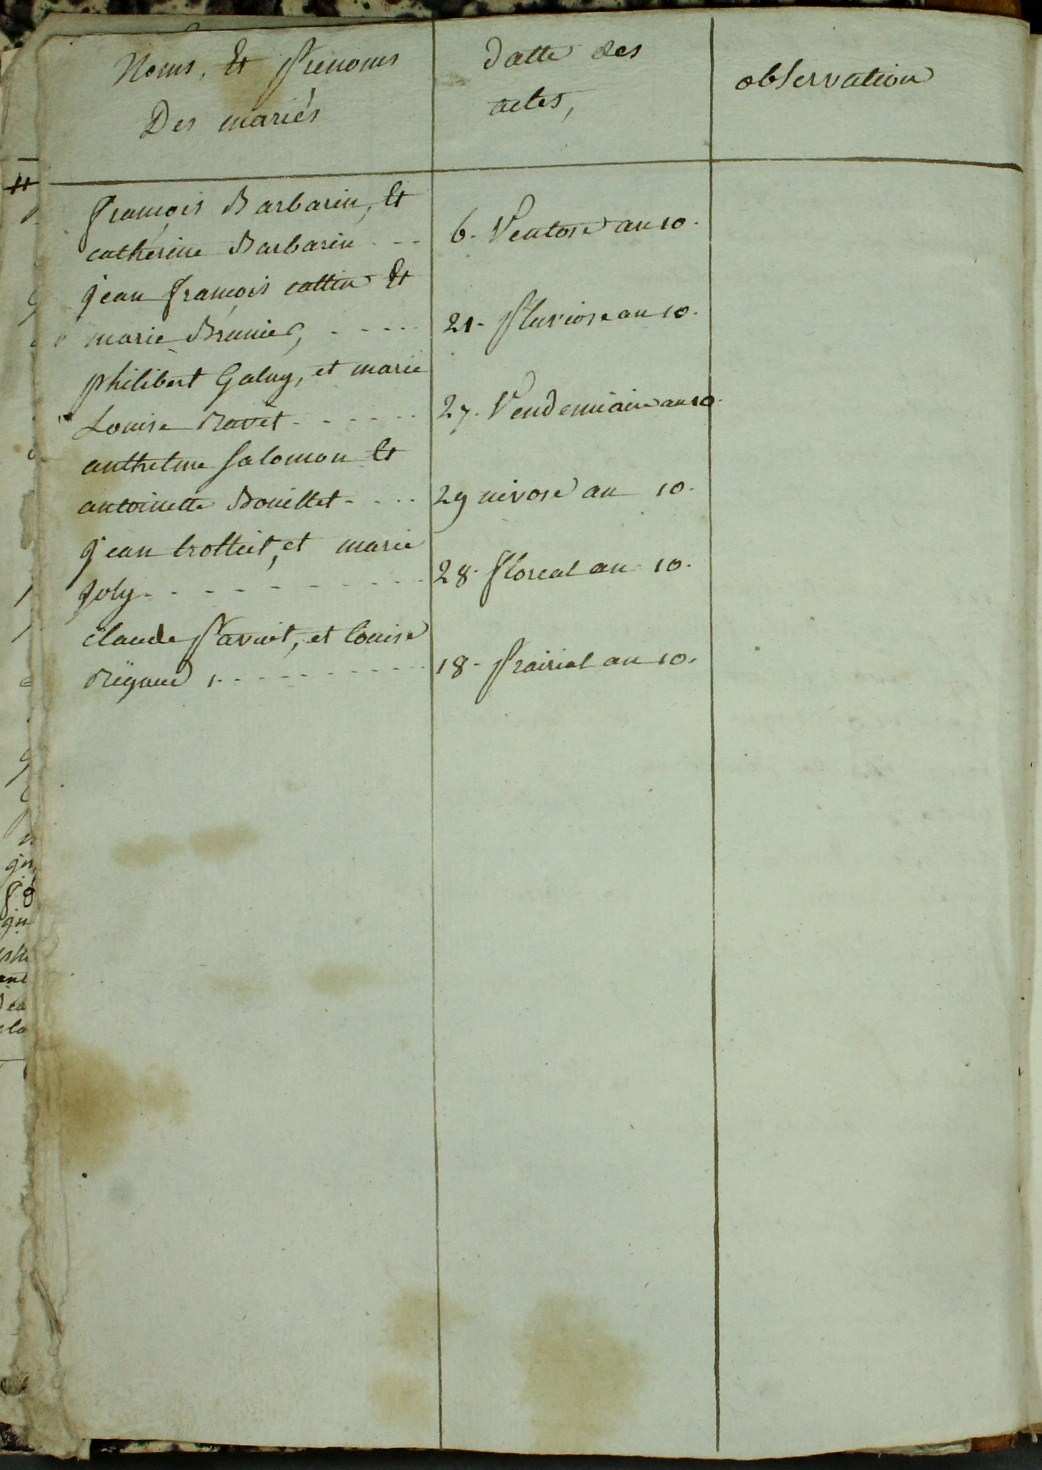 Noms, Et Prenoms
Des mariés
datte des
actes,
observation
françois Barbarin, Et
catherine Barbarin
6. Ventose an 10.
jean françois cattin Et
marie Brunier,
21. Pluviose an 10.
philibert Galuy, et marie
Louise Ravet
27. Vendemiaire an 10.
anthelme Salomon Et
antoinette Bouillet
29 nivose an 10.
jean trottet, et marie
joly
28. floreal an 10.
claude Parviot, et louise
Reÿnaud
18. Prairial an 10.